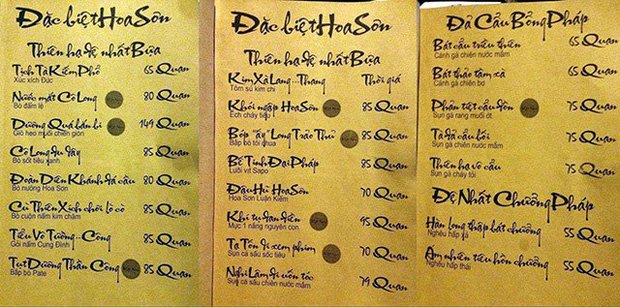 Đặc biệt Hoa Sơn
Thiên hạ đệ nhất Bựa
Tịch Tà Kiếm Phổ 65 Quan
Xúc xích Đức
Nước mắt Cô Long 80 Quan
Bò đấm lệ
Dương Quá bắn bi 149 Quan
Giò heo muối chiên giòn
Cô Long du dây 85 Quan
Bò sốt tiêu xanh
Đoàn Diên Khánh đá cầu 80 Quan
Bò nướng Hoa Sơn
Cù Thiên Xích chơi lò cò 85 Quan
Bò cuộn nấm kim châm
Tiêu Vô Tướng-Công 85 Quan
Gỏi nấm Cung Đình
Tụt Dương Thần Công 85 Quan
Bắp bò Pate
Đặc biệt Hoa Sơn
Thiên hạ đệ nhất Bựa
Kim Xà Lang-Thang Thời giá
Tôm sú kim chi
Khói ngập Hoa Sơn 85 Quan
Ếch cháy tiêu
Bóp "ấy" Long Trảo Thủ 85 Quan
Bắp bò tỏi chua
Bế Tinh Đại Pháp 85 Quan
Lưỡi vịt Sapo
Đậu Hủ Hoa Sơn 70 Quan
Hoa Sơn Luận Kiếm
Khỉ tự đan điền 95 Quan
Mực 1 nắng nguyên con
Tạ Tốn đi xem phim 70 Quan
Sụn cá sấu sốc tiêu
Nghi Lâm đi uốn tóc 79 Quan
Sụn cá sấu chiên nước mắm
Đả Cẩu Bổng Pháp
Bát cẩu triều thiên 65 Quan
Cánh gà chiên nước mắm
Bát thảo tầm xà 65 Quan
Cánh gà chiên bơ
Phản tiệt cẩu đồn 75 Quan
Sụn gà rang muối ớt
Tà đả cẩu bối 75 Quan
Sụn gà chiên nước mắm
Thiên hạ vô cẩu 75 Quan
Sụn gà cháy tỏi
Đệ Nhất Chưởng Pháp
Hàn long thập bát chưởng 55 Quan
Nghêu hấp xả
Ám nhiên tiêu hồn chưởng 55 Quan
Nghêu hấp thái